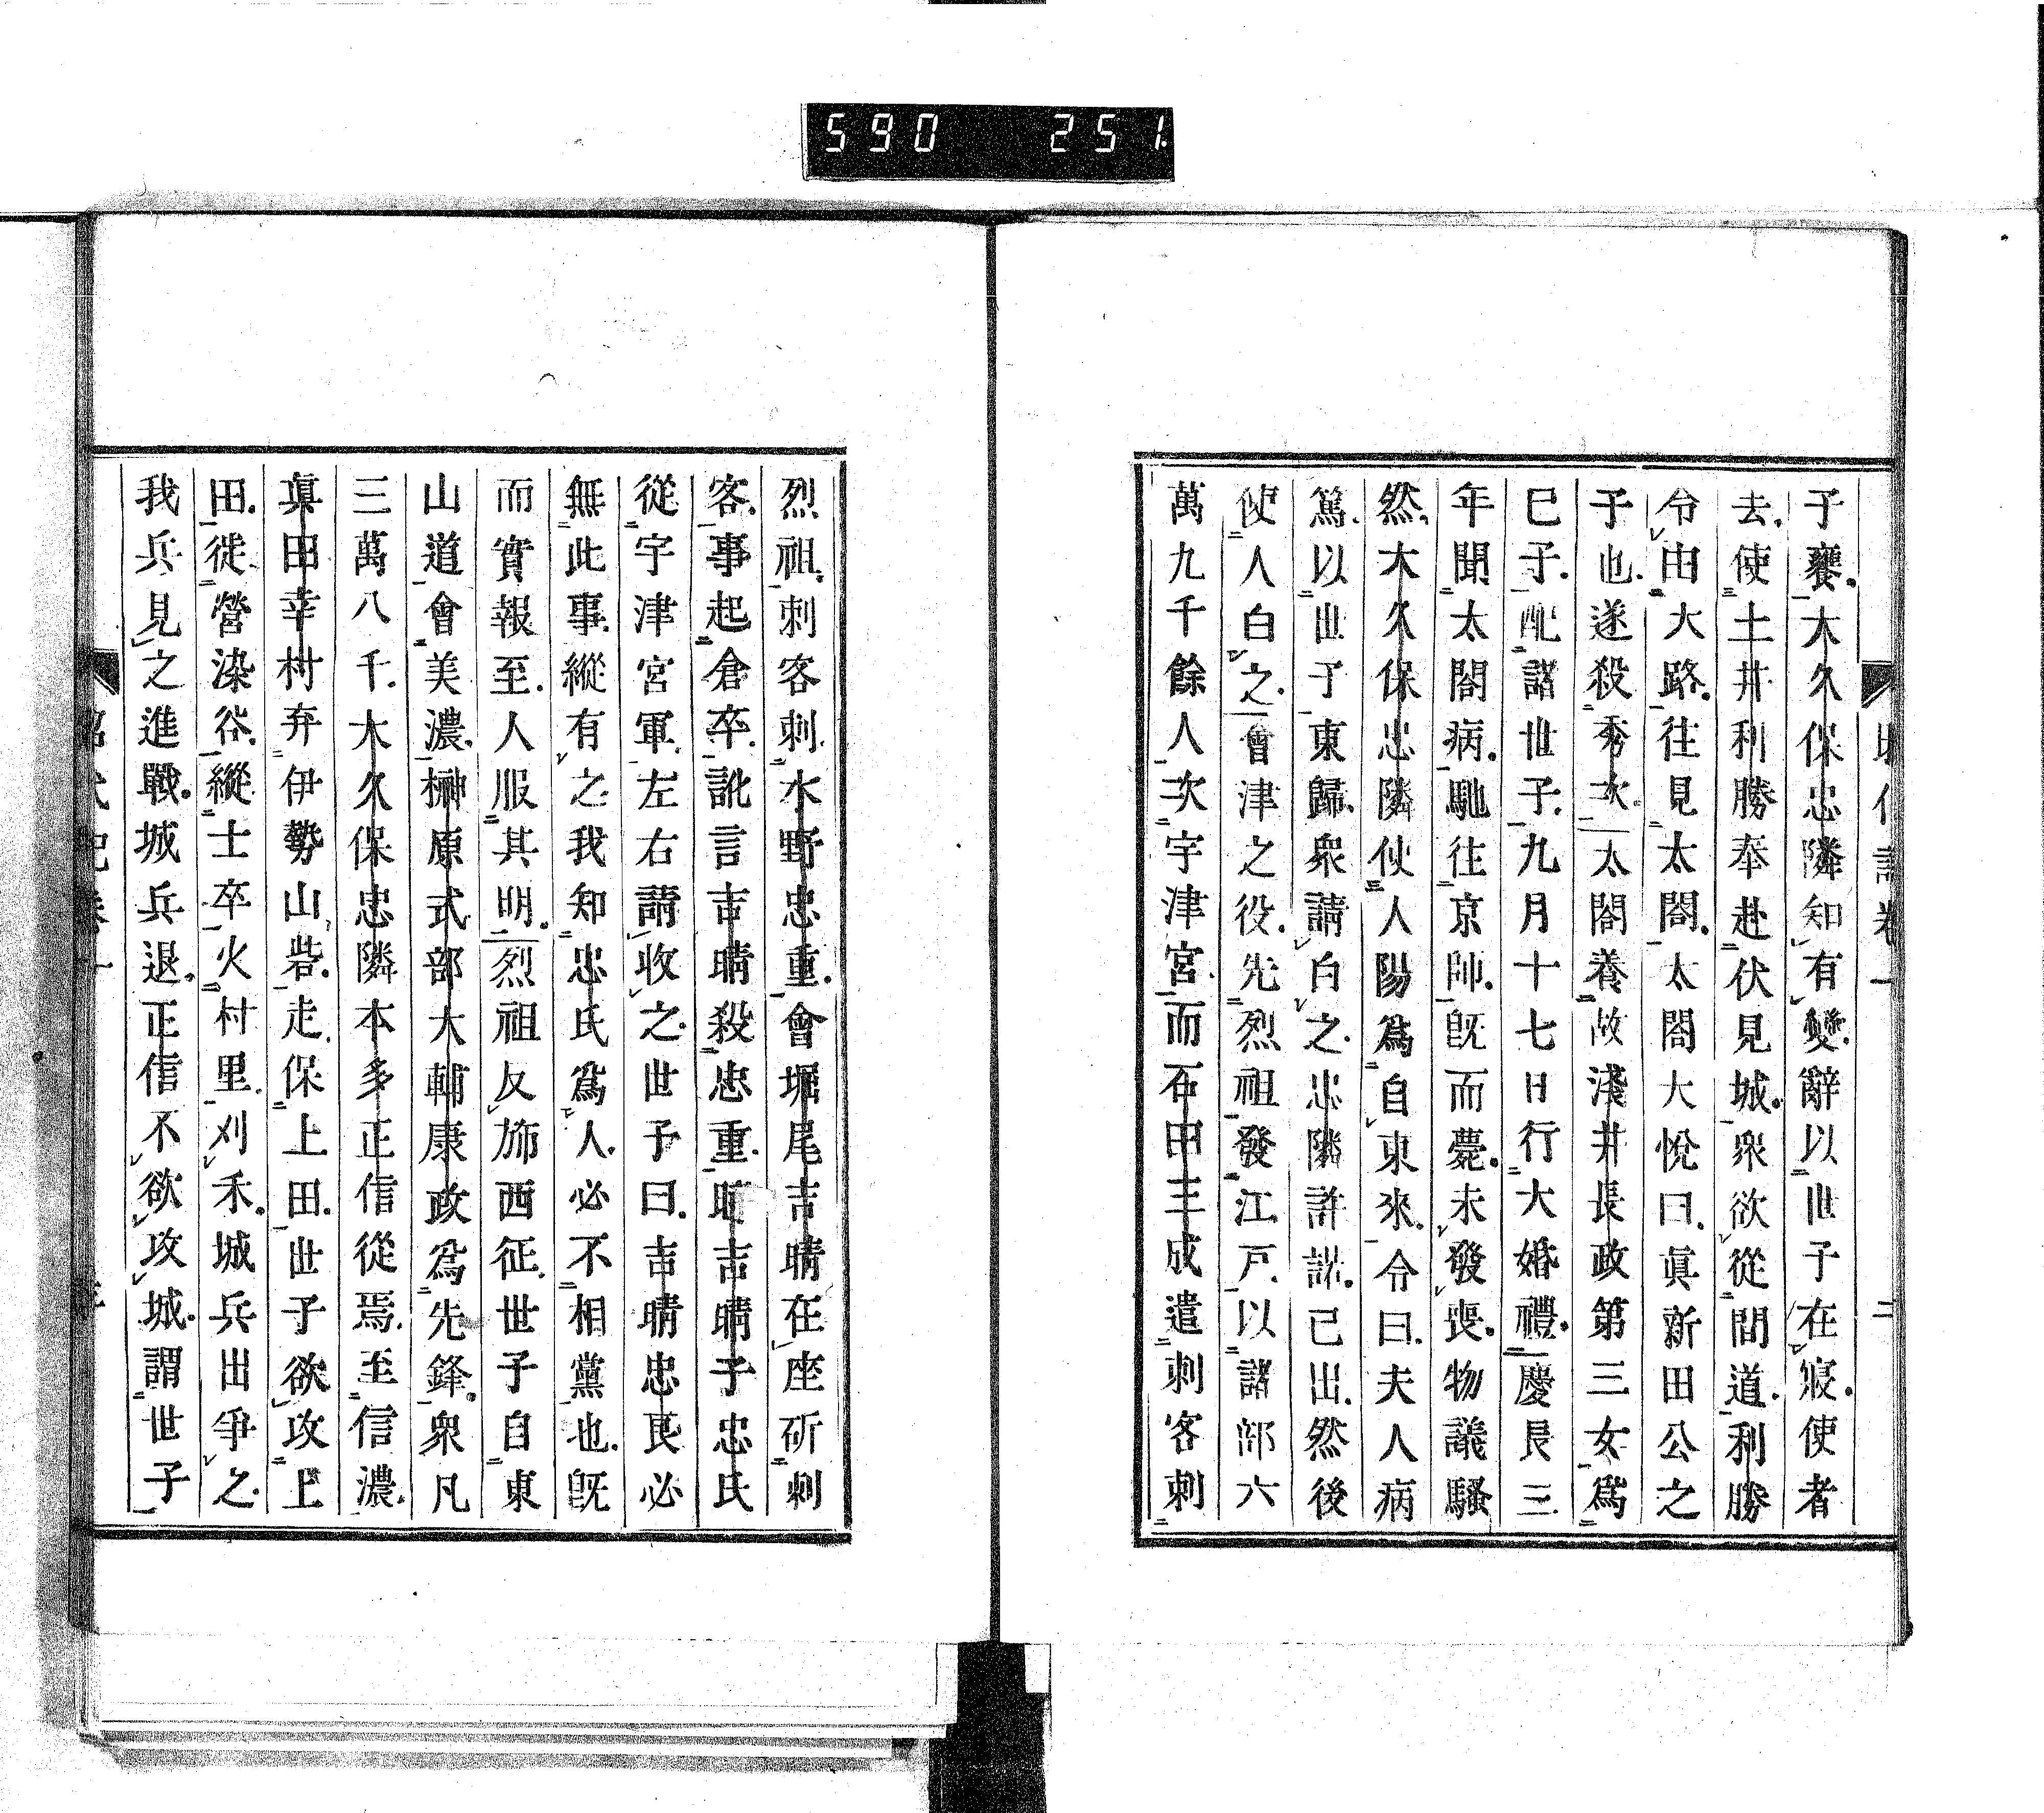 590 251
子饔大久保忠隣知有變辭以世子在寢使者
去使土井利勝奉赴伏見城衆欲從間道利勝
令由大路往見太閤太閤大悅曰眞新田公之
子也遂殺秀次太閤養故淺井長政第三女爲
己子配諸世子九月十七日行大婚禮慶長三
年聞太閤病馳往京師既而薨未發喪物議騷
然大久保忠隣使人陽爲自東來令曰夫人病
篤以世子東歸衆請白之忠隣許諾已出然後
使人白之會津之役先烈祖發江戶以諸部六
萬九千餘人次宇津宮而石田三成遣刺客刺
烈祖刺客刺水野忠重會堀尾吉晴在座斫刺
客事起倉卒訛言吉晴殺忠重吉晴子忠氏
從宇津宮軍左右請收之世子曰吉晴忠良必
無此事縱有之我知忠氏爲人必不相黨也既
而實報至人服其明烈祖反斾西征世子自東
山道會美濃榊原式部大輔康政爲先鋒衆凡
三萬八千大久保忠隣本多正信從焉至信濃
眞田幸村弃伊勢山砦走保上田世子欲攻上
田徙營染谷縱士卒火村里刈禾城兵出爭之
我兵見之進戰城兵退正信不欲攻城謂世子